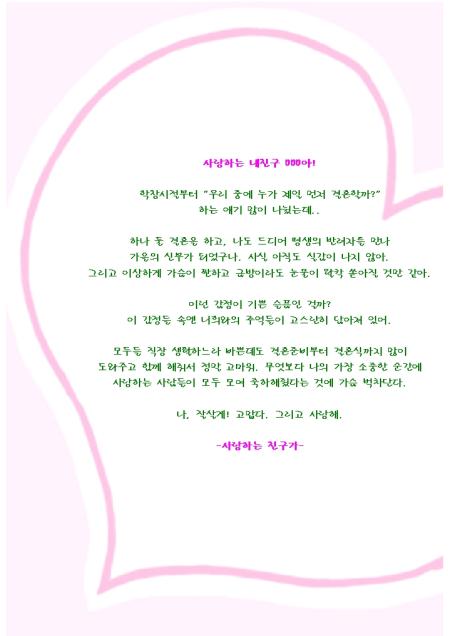 사랑하는 내친구 000아!
학창시절부터 "우리 중에 누가 제일 먼저 결혼할까?"
하는 얘기 많이 나눴는데..
하나 둘 결혼을 하고, 나도 드디어 평생의 반려자를 만나
가을의 신부가 되었구나. 사실 아직도 실감이 나지 않아.
그리고 이상하게 가슴이 찡하고 금방이라도 눈물이 왈칵 쏟아질 것만 같아.
이런 감정이 기쁜 슬픔인 걸까?
이 감정들 속엔 너희와의 추억들이 고스란히 담아져 있어.
모두들 직장 생활하느라 바쁜데도 결혼준비부터 결혼식까지 많이
도와주고 함께 해줘서 정말 고마워. 무엇보다 나의 가장 소중한 순간에
사랑하는 사람들이 모두 모여 축하해줬다는 것에 가슴 벅차단다.
나, 잘살게! 고맙다. 그리고 사랑해.
-사랑하는 친구가-